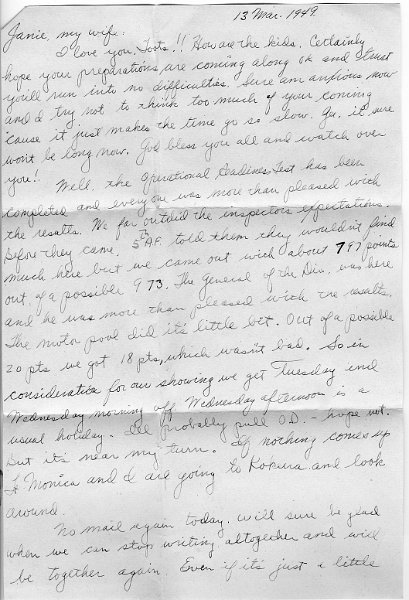 13 Mar. 1949.
Janie, my wife:
I love you, Toots!! How are the kids. Certainly
hope your preparations are coming along ok and trust
you'll run into no difficulties. Sure am anxious now
and I try not to think too much of your coming
'cause it just makes the time go so slow. Ya, it sure
won't be long now. God bless you all and watch over
you!
Well, the Operational Readiness Test has been
completed and everyone was more than pleased with
the results. We far outdid the inspectors expectations.
Before they came, 5th A.F. told them they wouldn't find
much here but we came out with about 787 points
out of a possible 973. The General of the Div. was here
and he was more than pleased with the results.
The motor pool did it's little bit. Out of a possible
20 pts we got 18 pts, which wasn't bad. So in
consideration for our showing we get Tuesday and
Wednesday morning off. Wednesday afternoon is a
usual holiday. I'll probably pull O.D. - hope not.
But it's near my turn. If nothing comes up
Monica and I are going to Kokura and look
around.
No mail again today. Will sure be glad
when we can stop writing altogether and will
be together again. Even if it's just a little